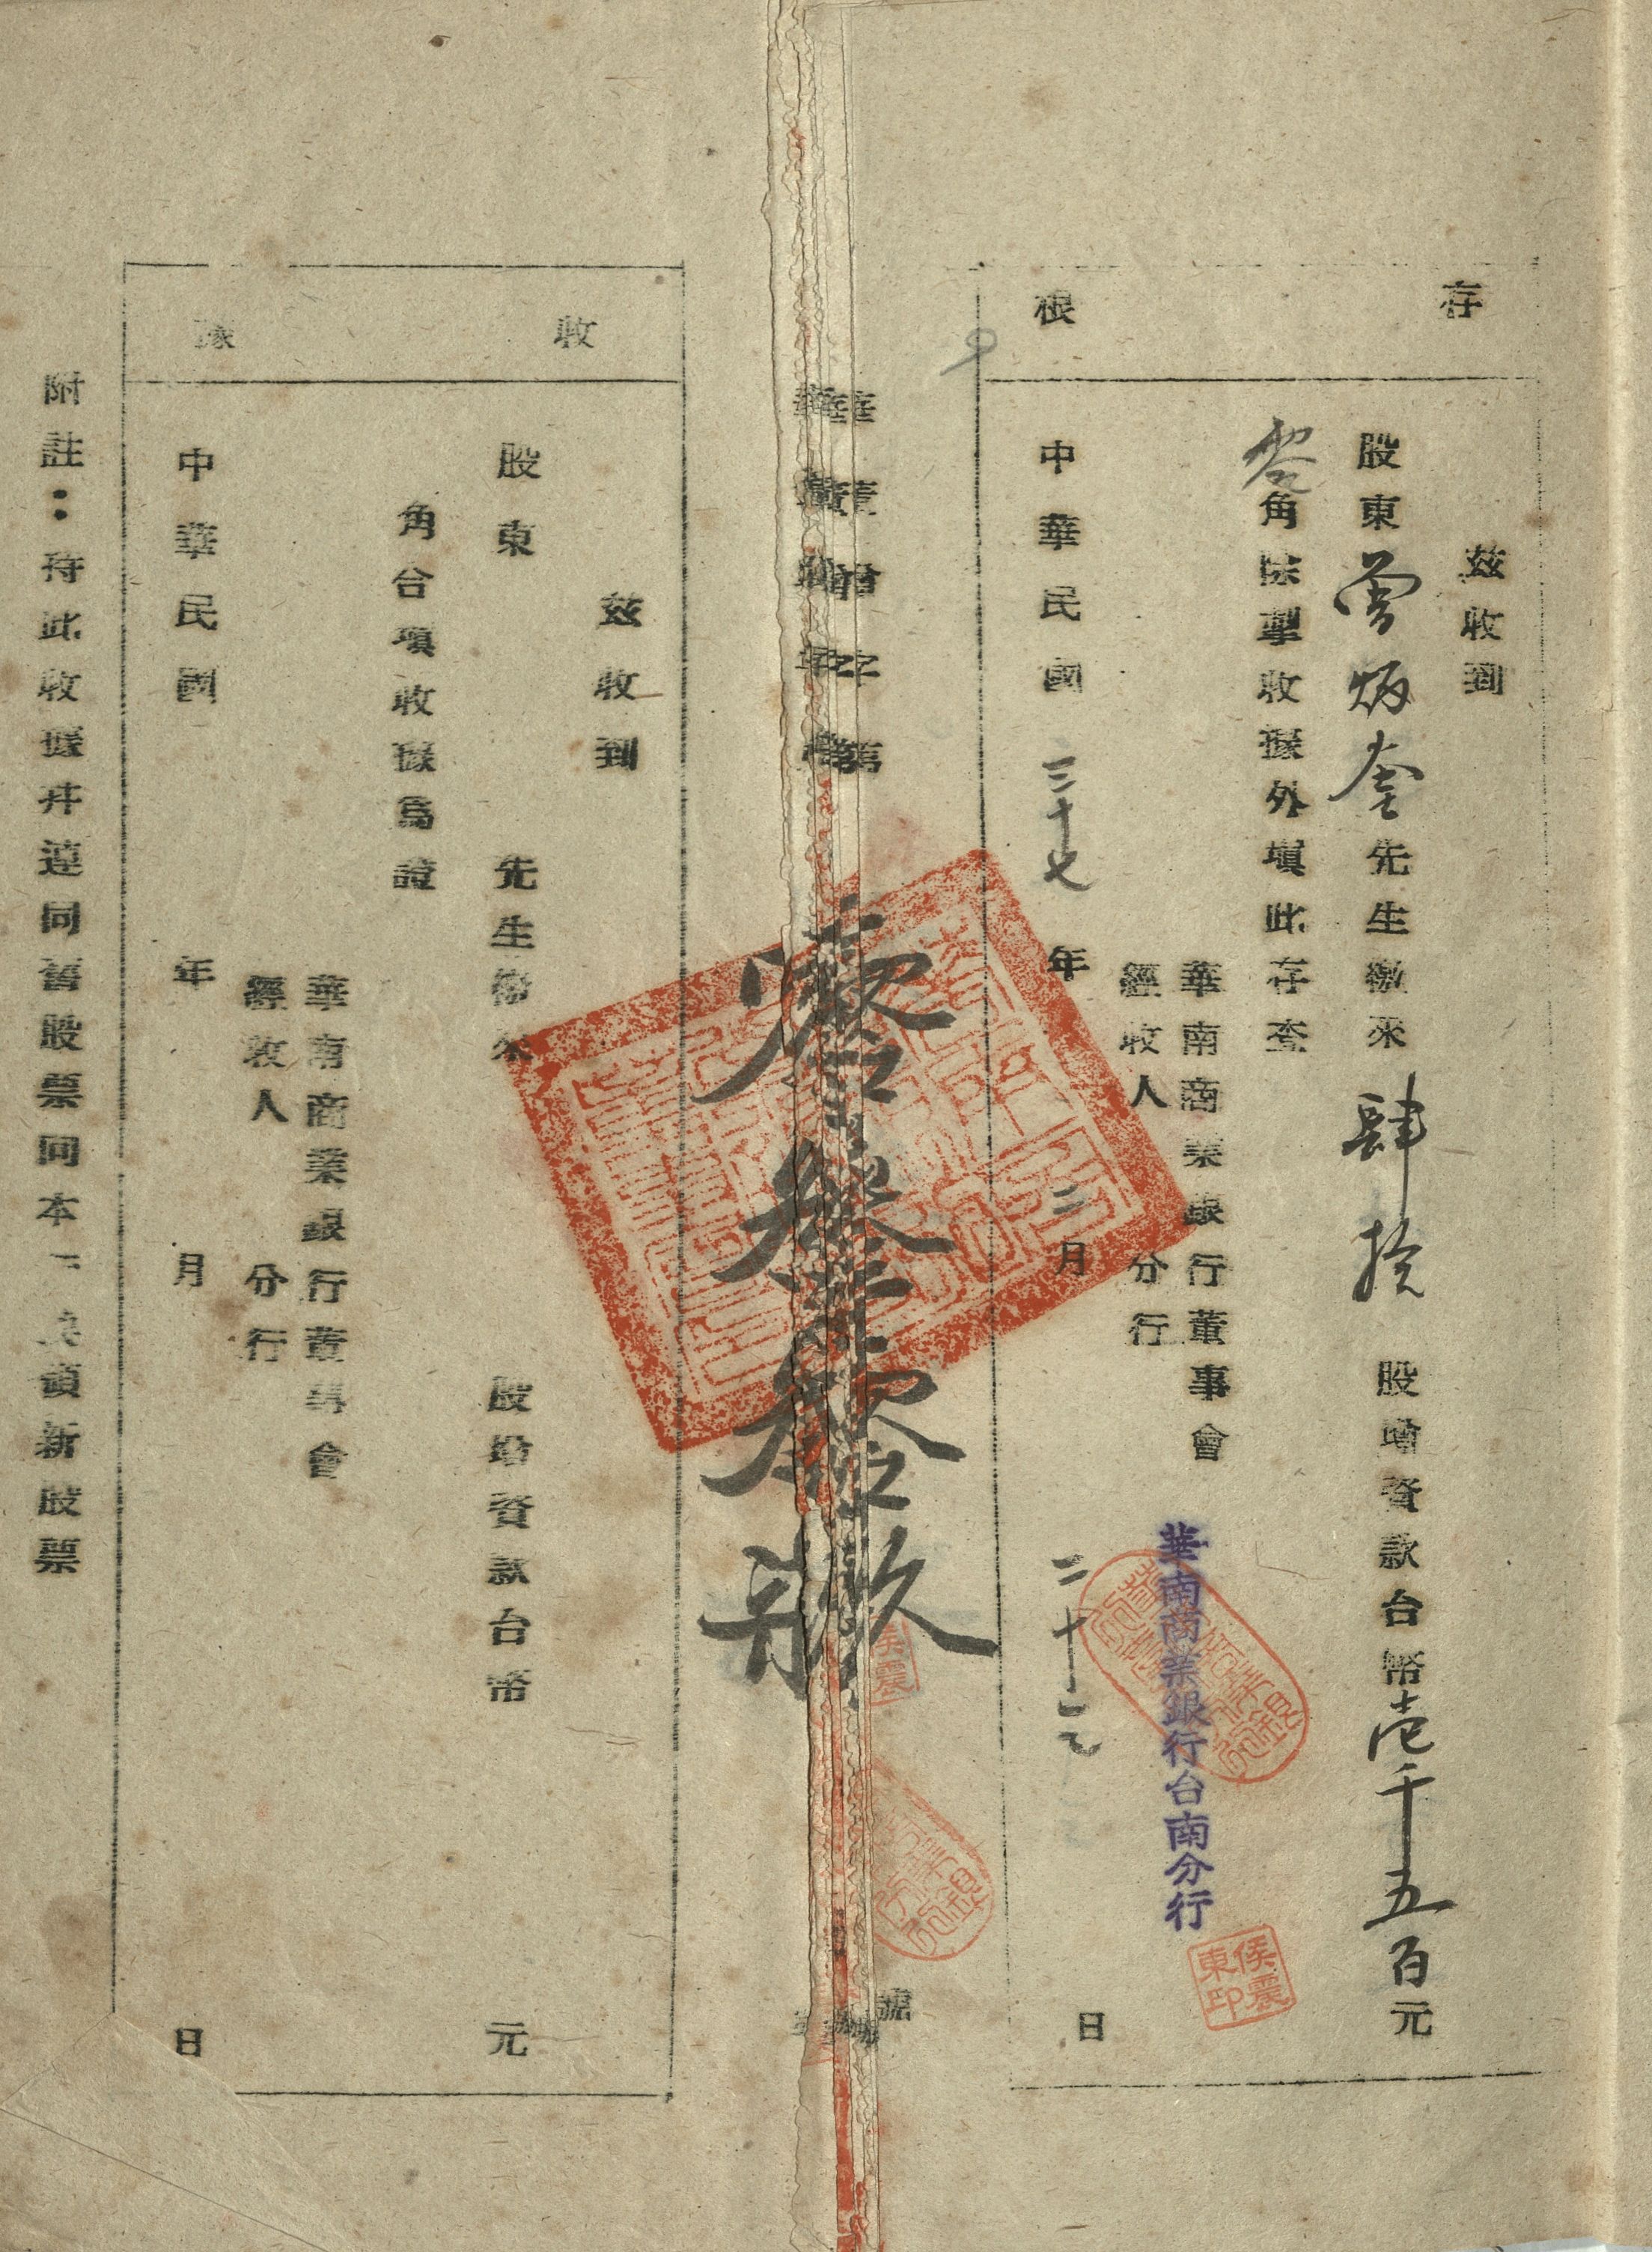 存根
茲收到
股東曾炳奎先生繳來肆拾股增資款台幣壱千五百元
零角除掣收據外塡此存查
華南商業銀行董事會
經收人分行
華南商業銀行台南分行
侯震東印
中華民國三十七年二月二十二日
華董增字第
號
收據
茲收到
股東先生繳來股增資款台幣元
角台塡收據爲證
華南商業銀行董事會
經收人分行
中華民國年月日
附註：持此收據幷連同舊股票向本行換領新股票